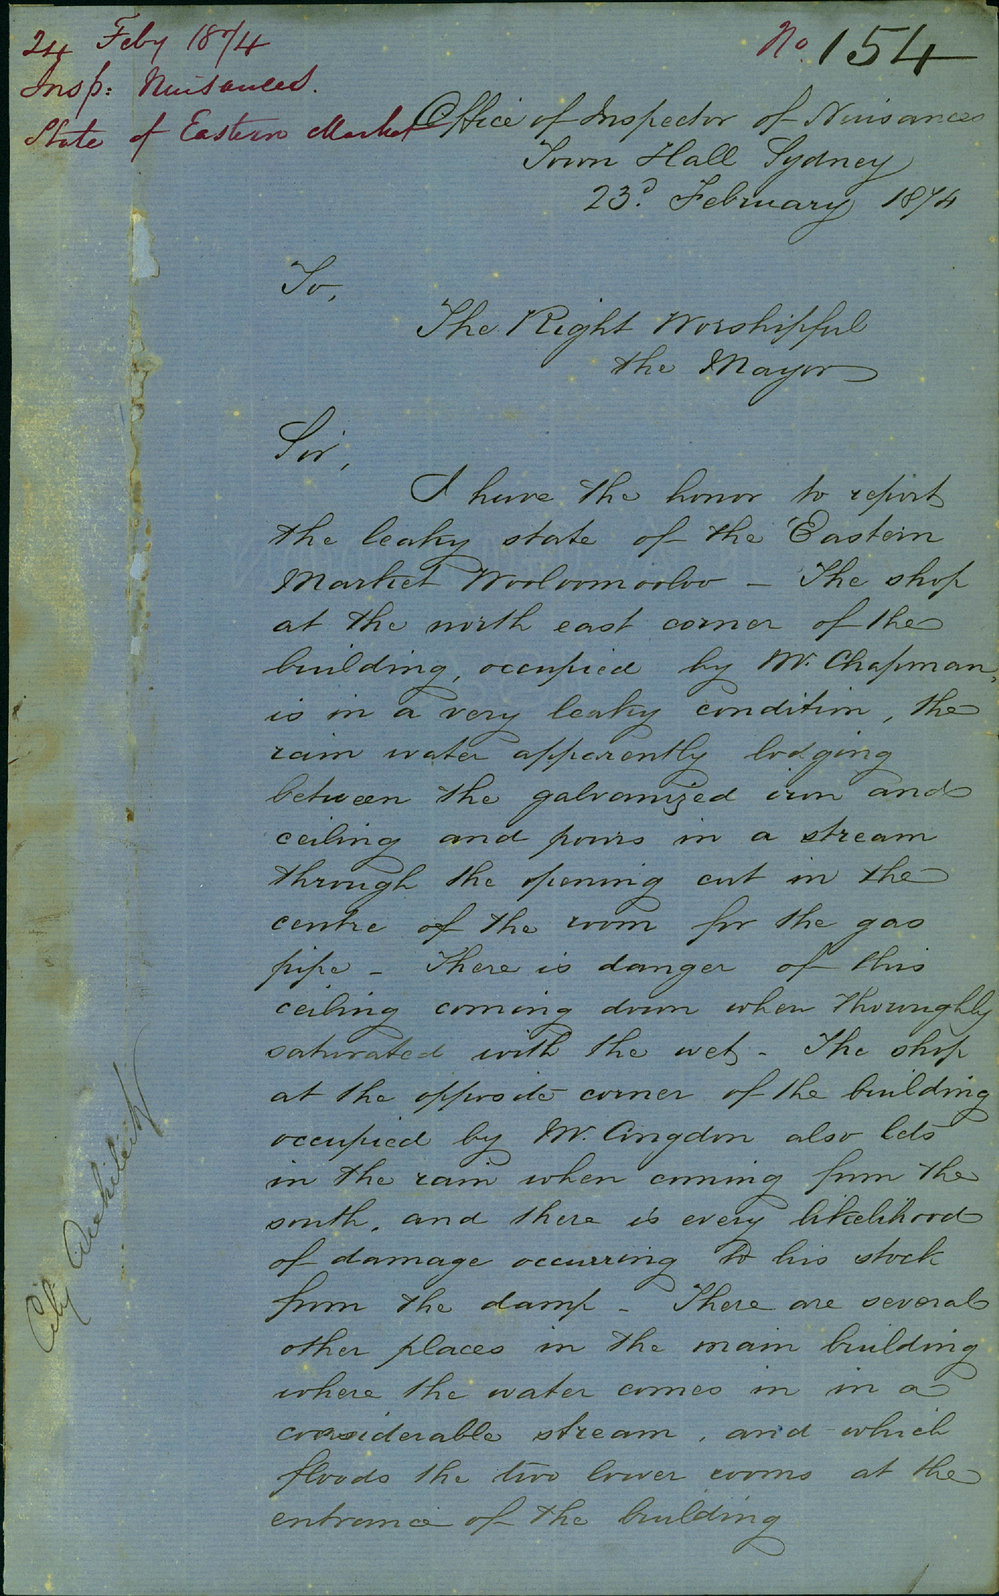 24 Feby 1874
Insp: Nuisances.
State of Eastern Market
No. 154
Office of Inspector of Nuisances
Town Hall Sydney
23d. February 1874
To,
The Right Worshipful
the Mayor
Sir,
I have the honor to report
the leaky state of the Eastern
Market Wooloomooloo - The shop
at the north east corner of the
building, occupied by Mr. Chapman,
is in a very leaky condition, the
rain water apparently lodging
between the galvanized iron and
ceiling and pours in a stream
through the opening cut in the
centre of the room for the gas
pipe - There is danger of this
ceiling coming down when thoroughly
saturated with the wet - The shop
at the opposite corner of the building
occupied by Mr. Congdon also lets
in the rain when coming from the
south, and there is every likelihood
of damage occurring to his stock
from the damp - There are several
other places in the main building
where the water comes in in a
considerable stream, and which
floods the two lower rooms at the
entrance of the building
City Architect